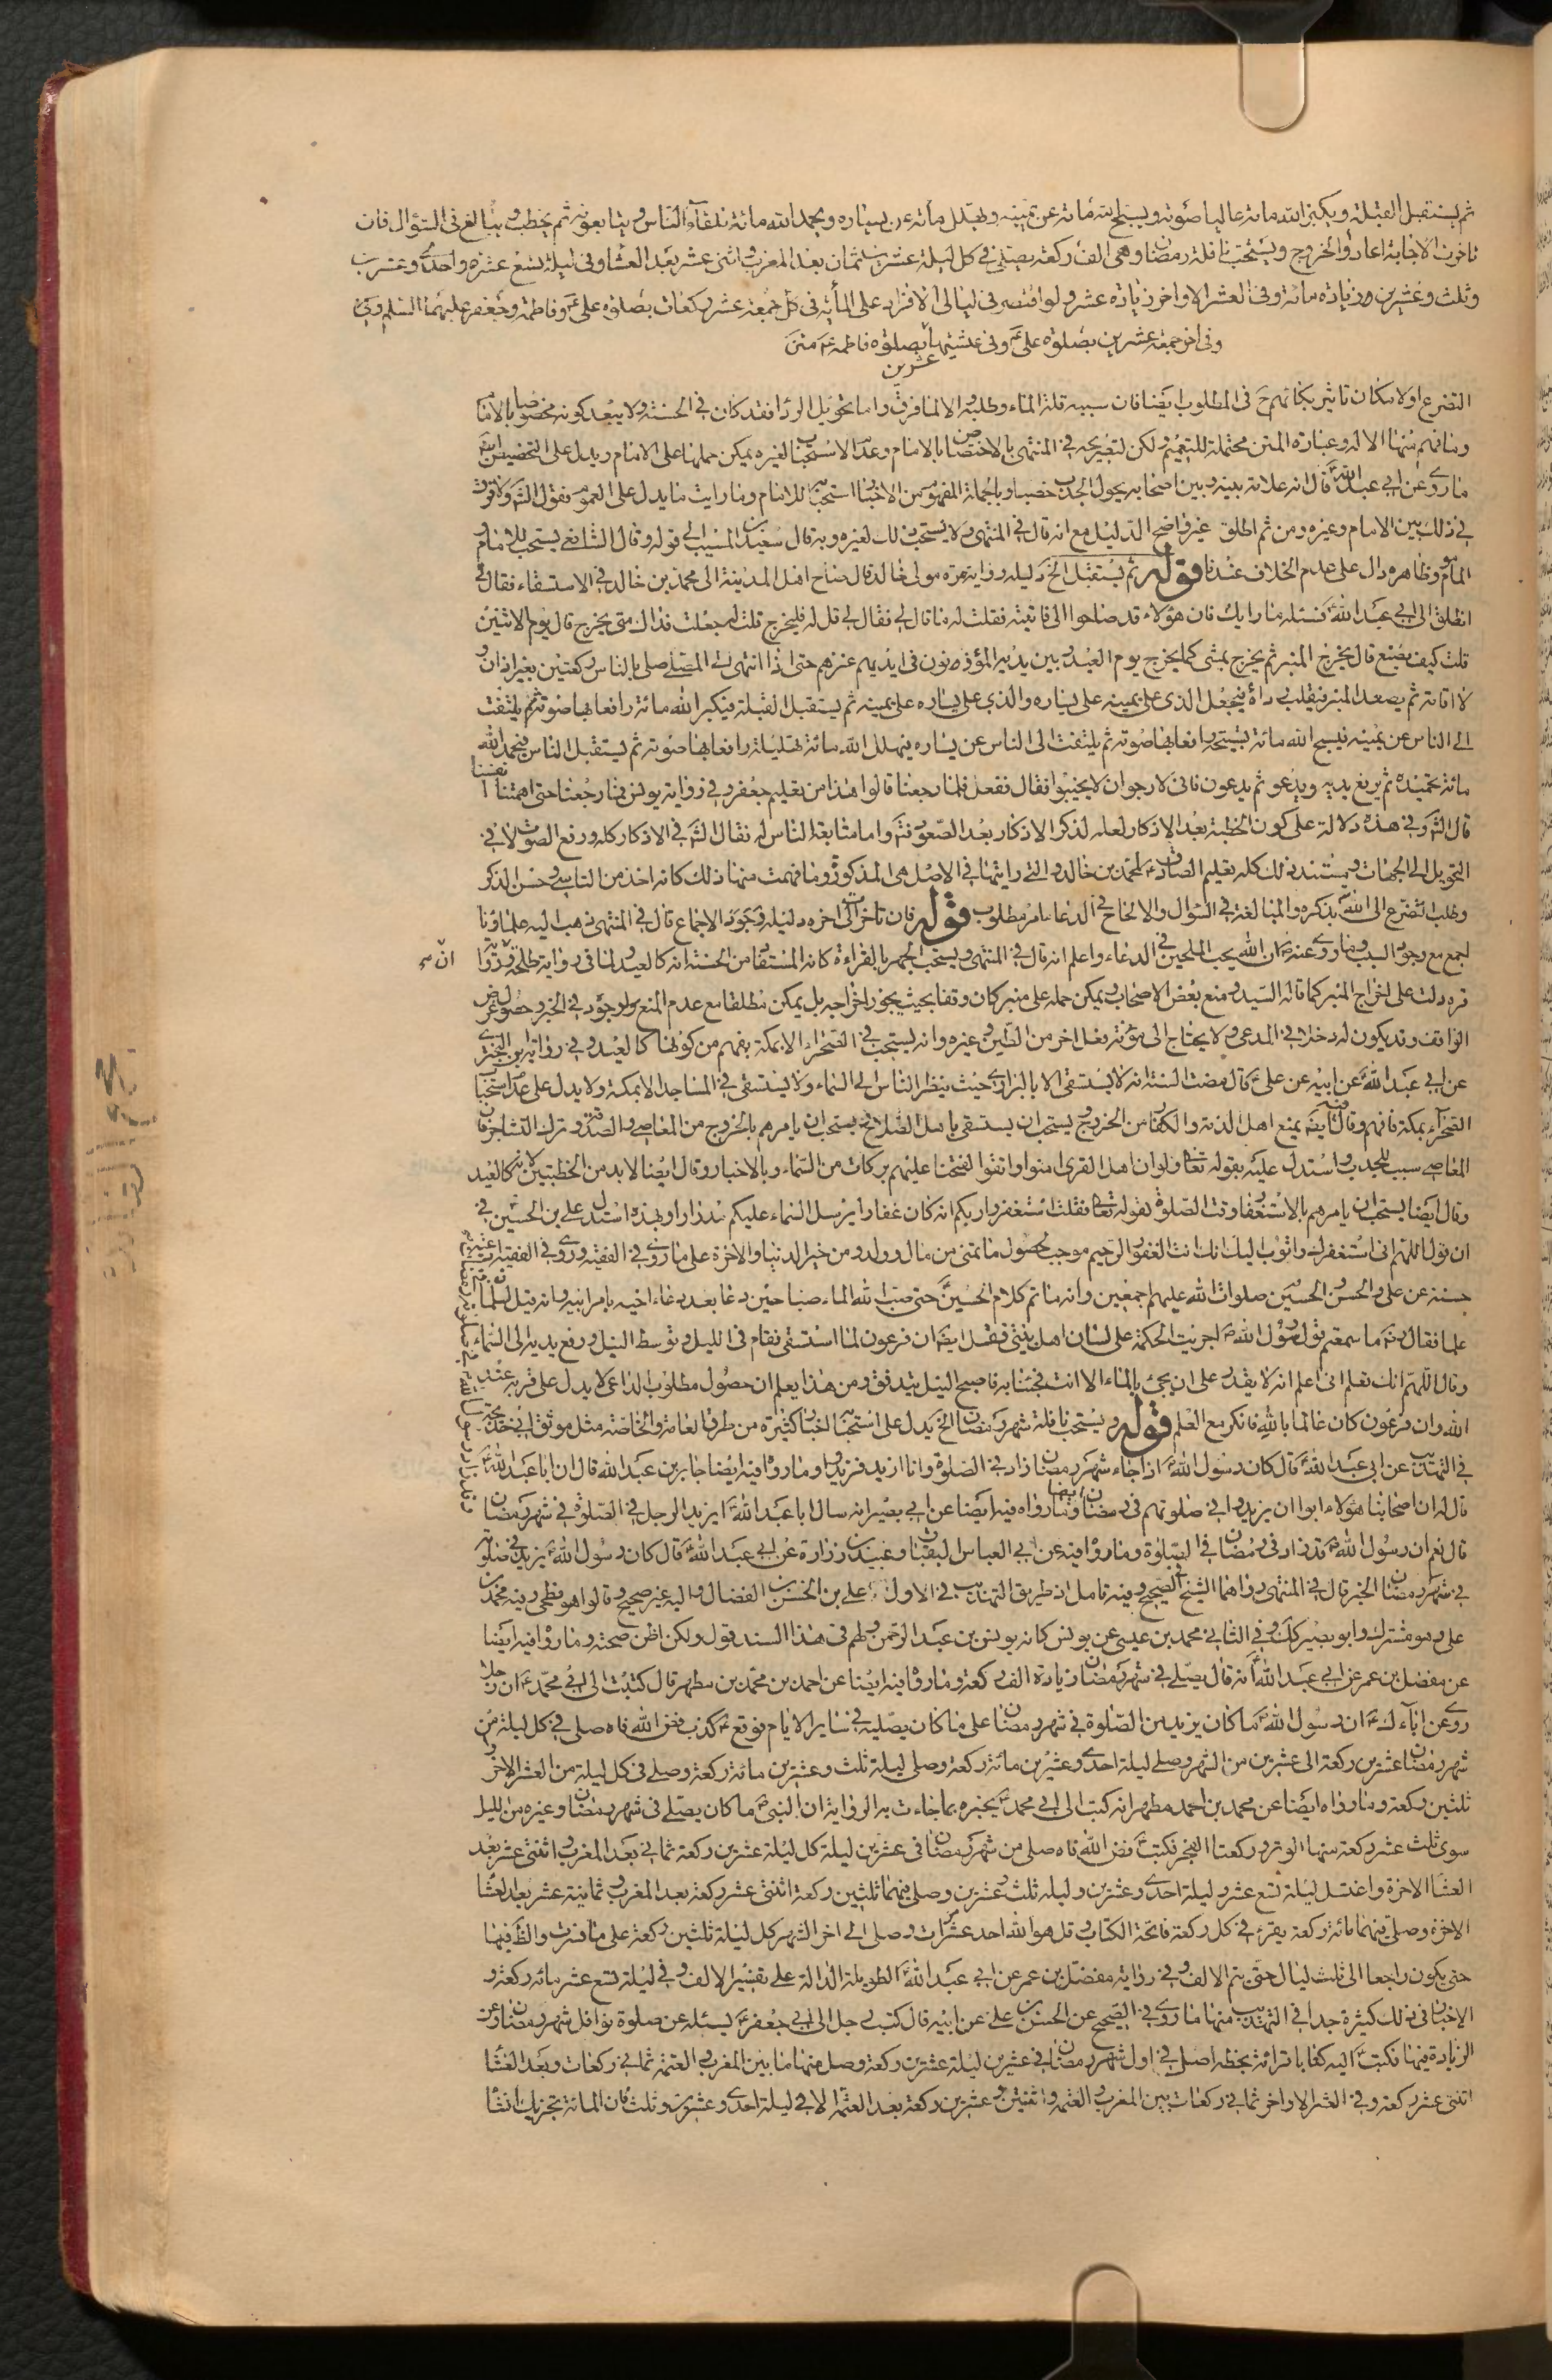 ثم يستقبل القبلة ويكبر الله مائة عاليا صوته ويسبح الله مائة عن يمينه ويهلل مائة عن يساره ويحمد الله مائة تلقاء الناس ويتابعونه ثم يخطب ويبالغ في السؤال فان
تاخرت الاجابة اعادوا الخروج ويستحب نافلة رمضان وهي الف ركعة يصلى في كل ليلة عشرين ثمان بعد المغرب واثنى عشر بعد العشاء وفي ليلة تسع عشرة واحدى وعشرين
وثلث وعشرين زيادة مائة وفي العشر الاواخر زيادة عشر ولو اقتصر في ليالى الافراد على المأية في كل جمعة عشر ركعات بصلوة على ع وفاطمة وجعفر عليهما السلم وفي
وفي اخر جمعة عشرين بصلوة على ع وفي عشيتها عشرين بصلوة فاطمة ع متن
التضرع اولا مكان تاثير بكائهم ح في المطلوب ايضا فان سببه قلة الماء وطلبه الا لما فرق واما تحويل الرداء فقد كان في الحسنة ولا يبعد كونه مخصوصا بالامام
وما فهم منها الا له وعبارة المتن محتملة للتعميم ولكن لتصريحه في المنتهى بالاختصاص بالامام وعدم الاستحباب لغيره يمكن حملها على الامام ويدل على التخصيص ايضا
ما روى عن ابي عبد الله ع قال انه علامة بينه وبين اصحابه يحول الجدب خصبا وبالجملة المفهوم من الاخبار استحبابه للامام وما رايت ما يدل على العموم فقول الش ولا فرق
في ذلك بين الامام وغيره ومن ثم اطلق غير واضح الدليل مع انه قال في المنتهى ولا يستحب ذلك لغيره وبه قال سعيد بن المسيب الى قوله وقال الشافعي يستحب للامام و
الماموم وظاهره دال على عدم الخلاف عندنا قوله ثم يستقبل الخ دليله رواية مرة مولى خالد قال صاح اهل المدينة الى محمد بن خالد في الاستسقاء فقال لي
انطلق الى ابي عبد الله ع فسئله ما رايك فان هؤلاء قد صاحوا الى فاتيته فقلت له ما قال لي فقال لي قل له فليخرج قلت له جعلت فداك متى يخرج قال يوم الاثنين
قلت كيف يصنع قال يخرج المنبر ثم يخرج يمشى كما يخرج يوم العيد وبين يديه المؤذنون في ايديهم عنزهم حتى اذا انتهى الى المصلى صلى بالناس ركعتين بغير اذان و
لا اقامة ثم يصعد المنبر فيقلب رداءه فيجعل الذى على يمينه على يساره والذي على يساره على يمينه ثم يستقبل القبلة فيكبر الله مائة رافعا بها صوته ثم يلتفت
الى الناس عن يمينه فيسبح الله مائة تسبيحة رافعا بها صوته ثم يلتفت الى الناس عن يساره فيهلل الله مائة تهليلة رافعا بها صوته ثم يستقبل الناس فيحمد الله
مائة تحميدة ثم يرفع يديه ويدعو ثم يدعون فاني لارجو ان لا يخيبوا فقال ففعل فلما رجعنا قالوا هذا من تعليم جعفر وفي رواية يونس فما رجعنا حتى اهمتنا انفسنا
قال الش وفي هذه دلالة على كون الخطبة بعد الاذكار لعله لذكر الاذكار بعد الصعود فتم واما متابعة الناس له فقال الش في الاذكار كله ورفع الصوت لا في
التحويل الى الجهات ومستند ذلك كله تعليم الصادق ع لمحمد بن خالد والتى رايتها في الاصل هي المذكورة وما فهمت منها ذلك كانه اخذ من التاسي وحسن الذكر
وطلب التضرع الى الله بذكره والمبالغة في السؤال والالحاح في الدعاء امر مطلوب قوله فان تاخرت الى اخره دليله وجود الاجماع قال في المنتهى ذهب اليه علماؤنا
اجمع مع وجود السبب وما روى عنه ص ان الله يحب الملحين في الدعاء واعلم انه قال في المنتهى ويستحب الجهر بالقراءة كانه المستفاد من الحسنة انه كالعيد ولما في رواية طلحة ورواية
ان
مرة دلت على اخراج المنبر كما قاله السيد ومنع بعض الاصحاب ويمكن حمله على منبر كان وقفا بحيث يجوز اخراجه بل يمكن مطلقا مع عدم المنع ولوجود في الخبر وحصول غرض
الواقف وقد يكون له دخل في المدعى ولا يحتاج الى مؤنة وفعل اخر من الطين وغيره وانه يستحب في الصحراء الا بمكة يفهم من كونها كالعيد وفي رواية ابي البختري
عن ابي عبد الله ع عن ابيه عن على ع قال مضت السنة انه لا يستسقى الا بالبراري حيث ينظر الناس الى السماء ولا يستسقى في المساجد الا بمكة ولا يدل على عدم استحباب
الصحراء بمكة فافهم وقال ايضا يمنع اهل الذمة والكفار من الخروج ويستحب ان يستسقى باهل الصلاح ويستحب ان يامرهم بالخروج من المعاصي والصدقة وترك التشاجر فان
المعاصي سبب للجدب واستدل عليه بقوله تعالى ولو ان اهل القرى امنوا واتقوا لفتحنا عليهم بركات من السماء وبالاخبار وقال ايضا لا بد من الخطبتين لانه كالعيد
وقال ايضا يستحب ان يامرهم بالاستغفار وقت الصلوة لقوله تعالى فقلت استغفروا ربكم انه كان غفارا يرسل السماء عليكم مدرارا وبهذه استدل على بن الحسين في
ان قول اللهم اني استغفرك واتوب اليك انك انت الغفور الرحيم موجب لحصول ما تمنى من مال وولد ومن خير الدنيا والاخرة على ما روى في الفقيه وروى في الفقيه
حسنة عن على والحسن والحسين صلوات الله عليهم اجمعين وانه ما تم كلام الحسين ع حتى صب الله الماء صبا حين دعا بعد دعاء اخيه بامر ابيه وانه قيل لسلمان
علما فقال ما سمعتم قول رسول الله ص اجريت الحكمة على لسان اهل بيتى فنقل ايضا ان فرعون لما استسقى فقام في الليل وتوسط النيل ورفع يديه الى السماء
وقال اللهم انك تعلم اني اعلم انه لا يقدر على ان يجئ بالماء الا انت فجئنا به فاصبح النيل يتدفق ومن هذا يعلم ان حصول مطلوب الداعى لا يدل على قربه عند
الله وان فرعون كان عالما بالله فانكر مع العلم قوله ويستحب نافلة شهر رمضان الخ يدل على استحبابها اخبار كثيرة من طرق العامة والخاصة مثل موثق ابي خديجة
في التهذيب عن ابي عبد الله ع قال كان رسول الله ص اذا جاء شهر رمضان زاد في الصلوة وانا ازيد فزيدوا وما رواه فيه ايضا جابر بن عبد الله قال ان ابا عبد الله ع
قال له ان اصحابنا هؤلاء ابوا ان يزيدوا في صلوتهم في رمضان وما رواه فيه ايضا عن ابي بصير انه سال ابا عبد الله ع ايزيد الرجل في الصلوة في شهر رمضان
قال نعم ان رسول الله ص قد زاد في رمضان في الصلوة وما رواه فيه عن ابي العباس البقباق وعبيد بن زرارة عن ابي عبد الله ع قال كان رسول الله ص يزيد في صلوته
في شهر رمضان الخبر قال في المنتهى رواهما الشيخ في الصحيح وفيه تامل اذ طريق التهذيب في الاول الى على بن الحسن بن الفضال واليه غير صحيح وقالوا هو فطحي وفيه محمد بن
على وهو مشترك وابو بصير كك وفي الثاني محمد بن عيسى عن يونس كانه يونس بن عبد الرحمن ولهم في هذا السند قول ولكن اظن صحته وما رواه فيه ايضا
عن مفضل بن عمر عن ابي عبد الله ع انه قال يصلى في شهر رمضان زيادة الف ركعة وما رواه فيه ايضا عن احمد بن محمد بن مطهر قال كتبت الى ابي محمد ع ان رجلا
روى عن ابائك ع ان رسول الله ص ما كان يزيد من الصلوة في شهر رمضان على ما كان يصليه في ساير الايام فوقع ع كذب فض الله فاه صلى في كل ليلة من
شهر رمضان عشرين ركعة الى عشرين من الشهر وصلى ليلة احدى وعشرين مائة ركعة وصلى ليلة ثلث وعشرين مائة ركعة وصلى في كل ليلة من العشر الاواخر
ثلثين ركعة وما رواه ايضا عن محمد بن احمد مطهر انه كتب الى ابي محمد ع يخبره بما جاءت به الرواية ان النبي ص ما كان يصلى في شهر رمضان وغيره من الليل
سوى ثلث عشر ركعة منها الوتر وركعتا الفجر فكتب ع فض الله فاه صلى من شهر رمضان في عشرين ليلة كل ليلة عشرين ركعة ثماني بعد المغرب واثنتى عشر بعد
العشاء الاخرة واغتسل ليلة تسع عشر وليلة احدى وعشرين وليلة ثلث وعشرين وصلى فيهما ثلثين ركعة اثنتى عشر ركعة بعد المغرب وثمانية عشر بعد العشاء
الاخرة وصلى فيهما مائة ركعة يقرء في كل ركعة فاتحة الكتاب وقل هو الله احد عشر مرات وصلى الى اخر الشهر كل ليلة ثلثين ركعة على ما فسرت والظ فيها
حتى يكون راجعا الى ثلث ليال حتى يتم الالف وفي رواية مفضل بن عمر عن ابي عبد الله ع الطويلة الدالة على تفسير الالف وفي ليلة تسع عشر مائة ركعة و
الاخبار في ذلك كثيرة جدا في التهذيب منها ما روى في الصحيح عن الحسن بن على عن ابيه قال كتب رجل الى ابي جعفر ع يسئله عن صلوة نوافل شهر رمضان وعن
الزيادة فيها فكتب ع اليه كتابا قرأته بخطه اصلى في اول شهر رمضان في عشرين ليلة عشرين ركعة وصل منها ما بين المغرب والعتمة ثماني ركعات وبعد العشاء
اثنتى عشر ركعة وفي العشر الاواخر ثماني ركعات بين المغرب والعتمة واثنتين وعشرين ركعة بعد العتمة الا في ليلة احدى وعشرين وثلث فان المائة تجزيك انشاء